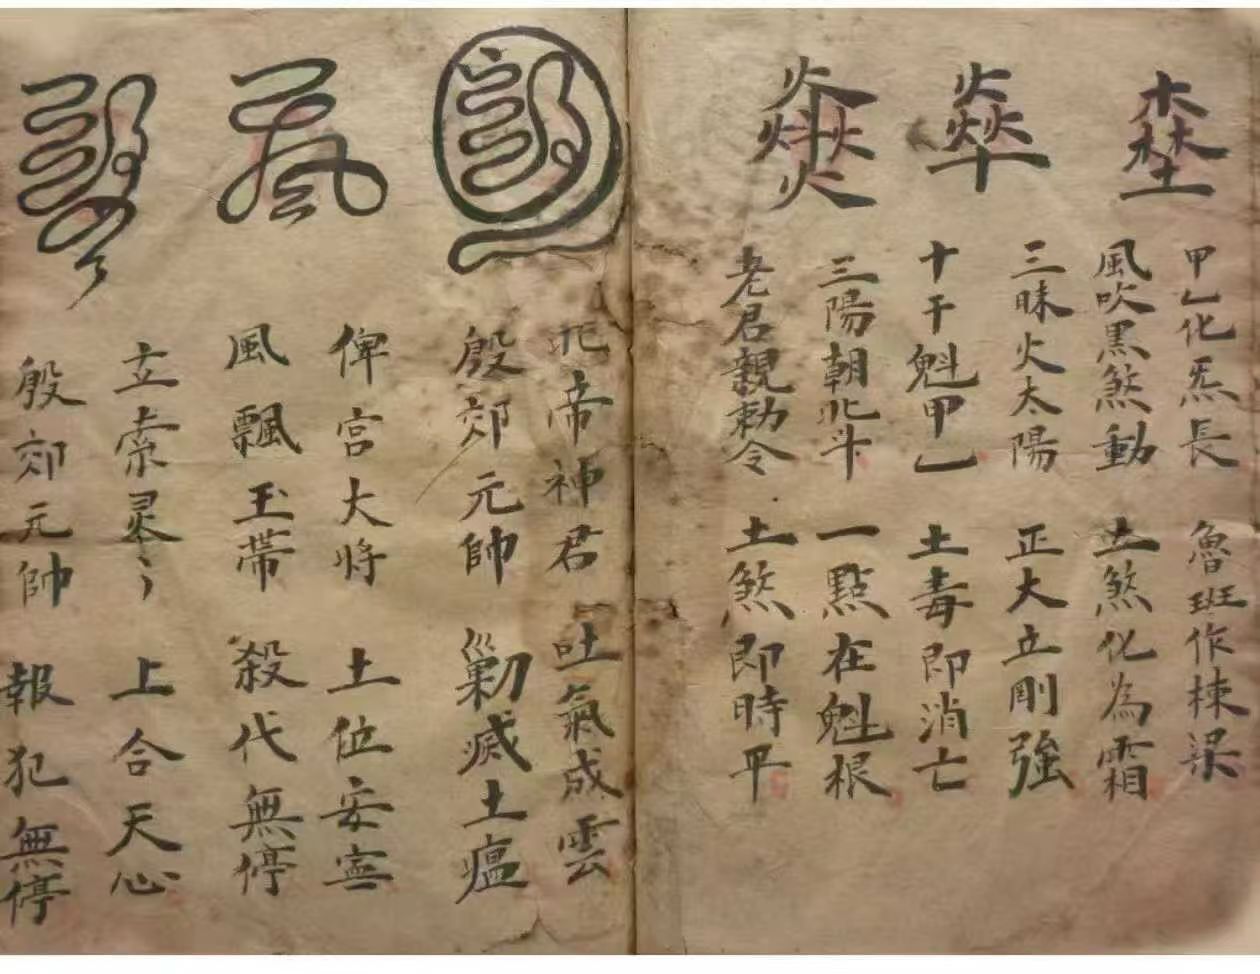 甲乙化炁長　魯班作棟梁
風吹黑煞動　土煞化為霜
三昧火太陽　正大立剛強
十干魁甲乙　土毒即消亡
三陽朝北斗　一點在魁根
老君親勅令　土煞即時平
北帝神君　吐氣成雲
殷郊元帥　剿滅土瘟
俾宮大将　土位安寧
風飄玉帶　殺代無停
立索灵〻　上合天心
殷郊元帥　報犯無停